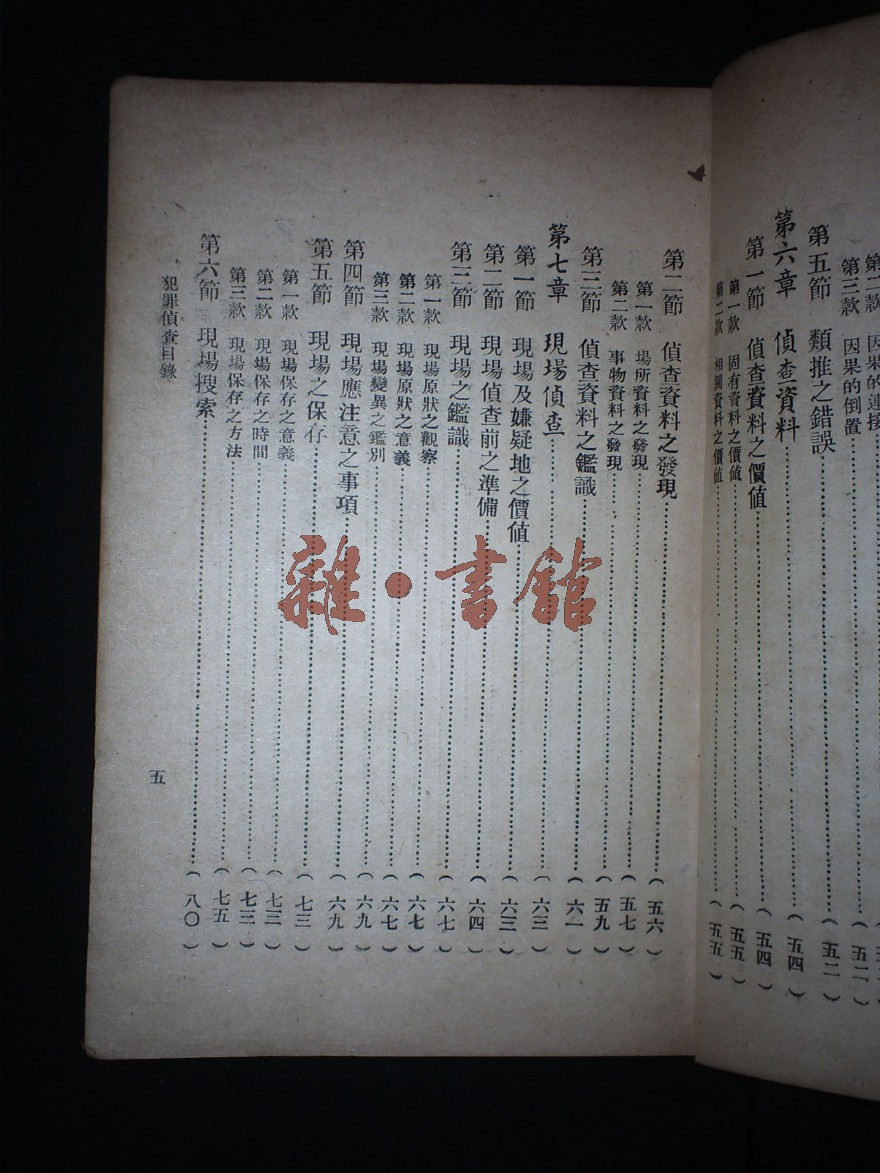 第三款 因果的倒置……(五二)
第五節 類推之錯誤……(五二)
第六章 偵查資料……(五四)
第一節 偵查資料之價值……(五四)
第一款 固有資料之價値……(五五)
第二款 相關資料之價値……(五五)
第二節 偵查資料之發現……(五六)
第一款 場所資料之發現……(五七)
第二款 事物資料之發現……(五九)
第三節 偵查資料之鑑識……(六一)
第七章 現場偵查……(六三)
第一節 現場及嫌疑地之價值……(六三)
第二節 現場偵查前之準備……(六四)
第三節 現場之鑑識……(六七)
第一款 現場原狀之觀察……(六七)
第二款 現場原狀之意義……(六七)
第三款 現場變異之鑑別……(六九)
第四節 現場應注意之事項……(六九)
第五節 現場之保存……(七三)
第一款 現場保存之意義……(七三)
第二款 現場保存之時間……(七三)
第三款 現場保存之方法……(七五)
第六節 現場搜索……(八〇)
犯罪偵查目錄
五
雜·書館